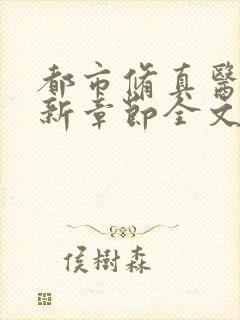 都市脩真醫
新章節全文
侯樹森